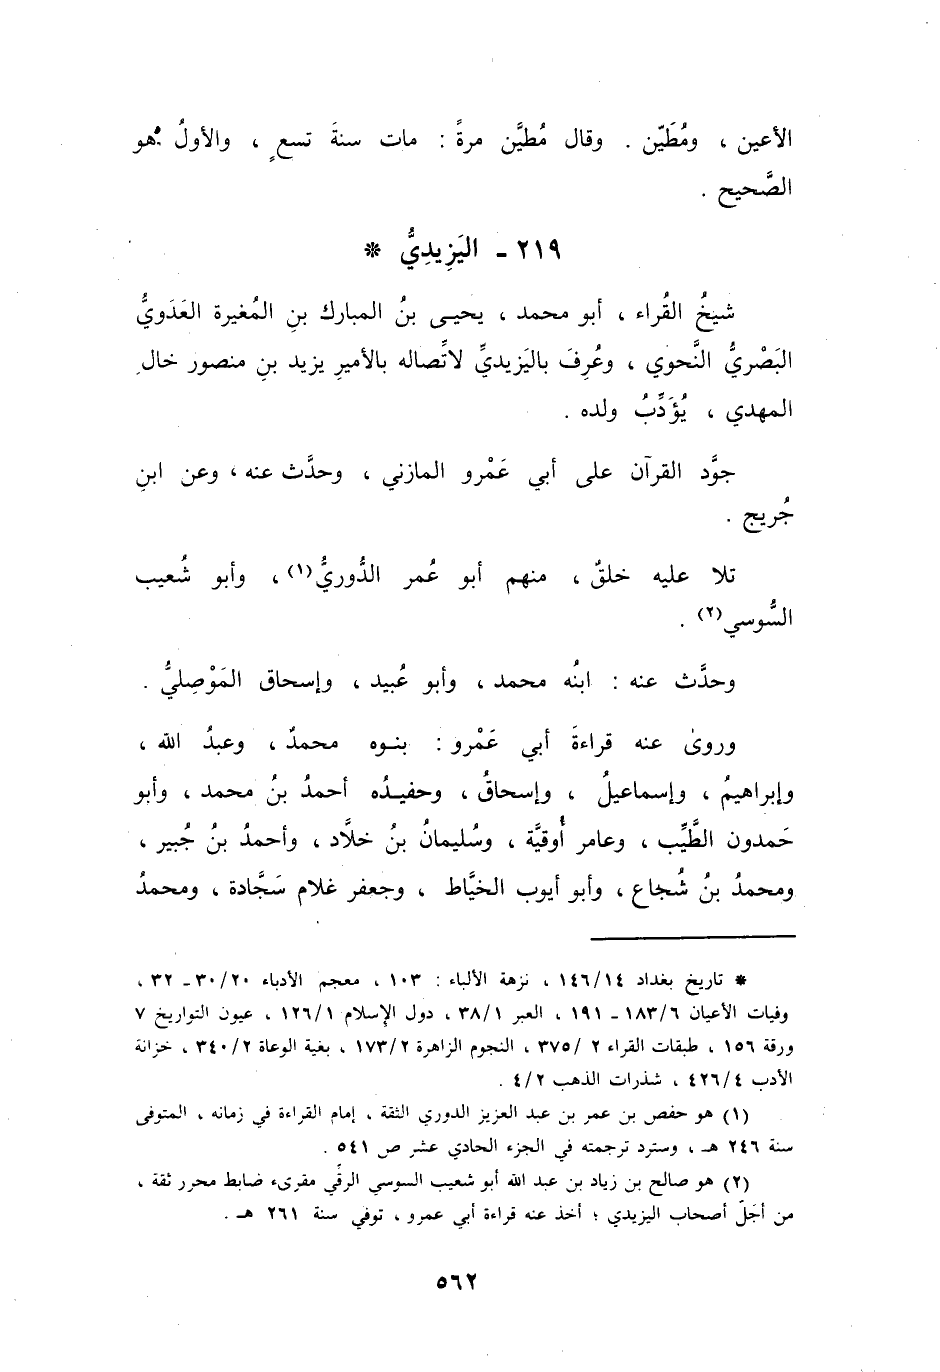 الأعين ، ومُطَيّن . وقال مُطيَّن مرةً : مات سنةَ تسعٍ ، والأولُ هو
الصَّحيح .
٢١٩ ـ اليَزِيدِيُّ *
شيخُ القُراء ، أبو محمد ، يحيـى بنُ المبارك بنِ المُغيرة العَدَويُّ
البَصْريُّ النَّحوي ، وعُرِفَ باليَزيديِّ لاتِّصاله بالأميرِ يزيد بنِ منصور خالِ
المهدي ، يُؤَدِّبُ ولده .
جوَّد القرآن على أبي عَمْرو المازني ، وحدَّث عنه ، وعن ابنِ
جُريج .
تلا عليه خلقٌ ، منهم أبو عُمر الدُّوريُّ(١) ، وأبو شُعيب
السُّوسي(٢) .
وحدَّث عنه : ابنُه محمد ، وأبو عُبيد ، وإسحاق المَوْصِليُّ .
وروىٰ عنه قراءةَ أبي عَمْرو : بنـوه محمدٌ ، وعبدُ الله ،
وإبراهيمُ ، وإسماعيلُ ، وإسحاقُ ، وحفيـدُه أحمدُ بنُ محمد ، وأبو
حَمدون الطَّيِّب ، وعامر أُوقيَّة ، وسُليمانُ بنُ خلَّاد ، وأحمدُ بنُ جُبير ،
ومحمدُ بنُ شُجاع ، وأبو أيوب الخيَّاط ، وجعفر غلام سَجَّادة ، ومحمدُ
* تاريخ بغداد ١٤٦/١٤ ، نزهة الألباء : ١٠٣ ، معجم الأدباء ٣٠/٢٠ ـ ٣٢ ،
وفيات الأعيان ١٨٣/٦ ـ ١٩١ ، العبر ٣٨/١ ، دول الإسلام ١٢٦/١ ، عيون التواريخ ٧
ورقة ١٥٦ ، طبقات القراء ٢ /٣٧٥ ، النجوم الزاهرة ١٧٣/٢ ، بغية الوعاة ٣٤٠/٢ ، خزانة
الأدب ٤٢٦/٤ ، شذرات الذهب ٤/٢ .
(١) هو حفص بن عمر بن عبد العزيز الدوري الثقة ، إمام القراءة في زمانه ، المتوفى
سنة ٢٤٦ هـ ، وسترد ترجمته في الجزء الحادي عشر ص ٥٤١ .
(٢) هو صالح بن زياد بن عبد الله أبو شعيب السوسي الرقِّي مقرىء ضابط محرر ثقة ،
من أجَلّ أصحاب اليزيدي ؛ أخذ عنه قراءة أبي عمرو ، توفي سنة ٢٦١ هـ .
٥٦٢